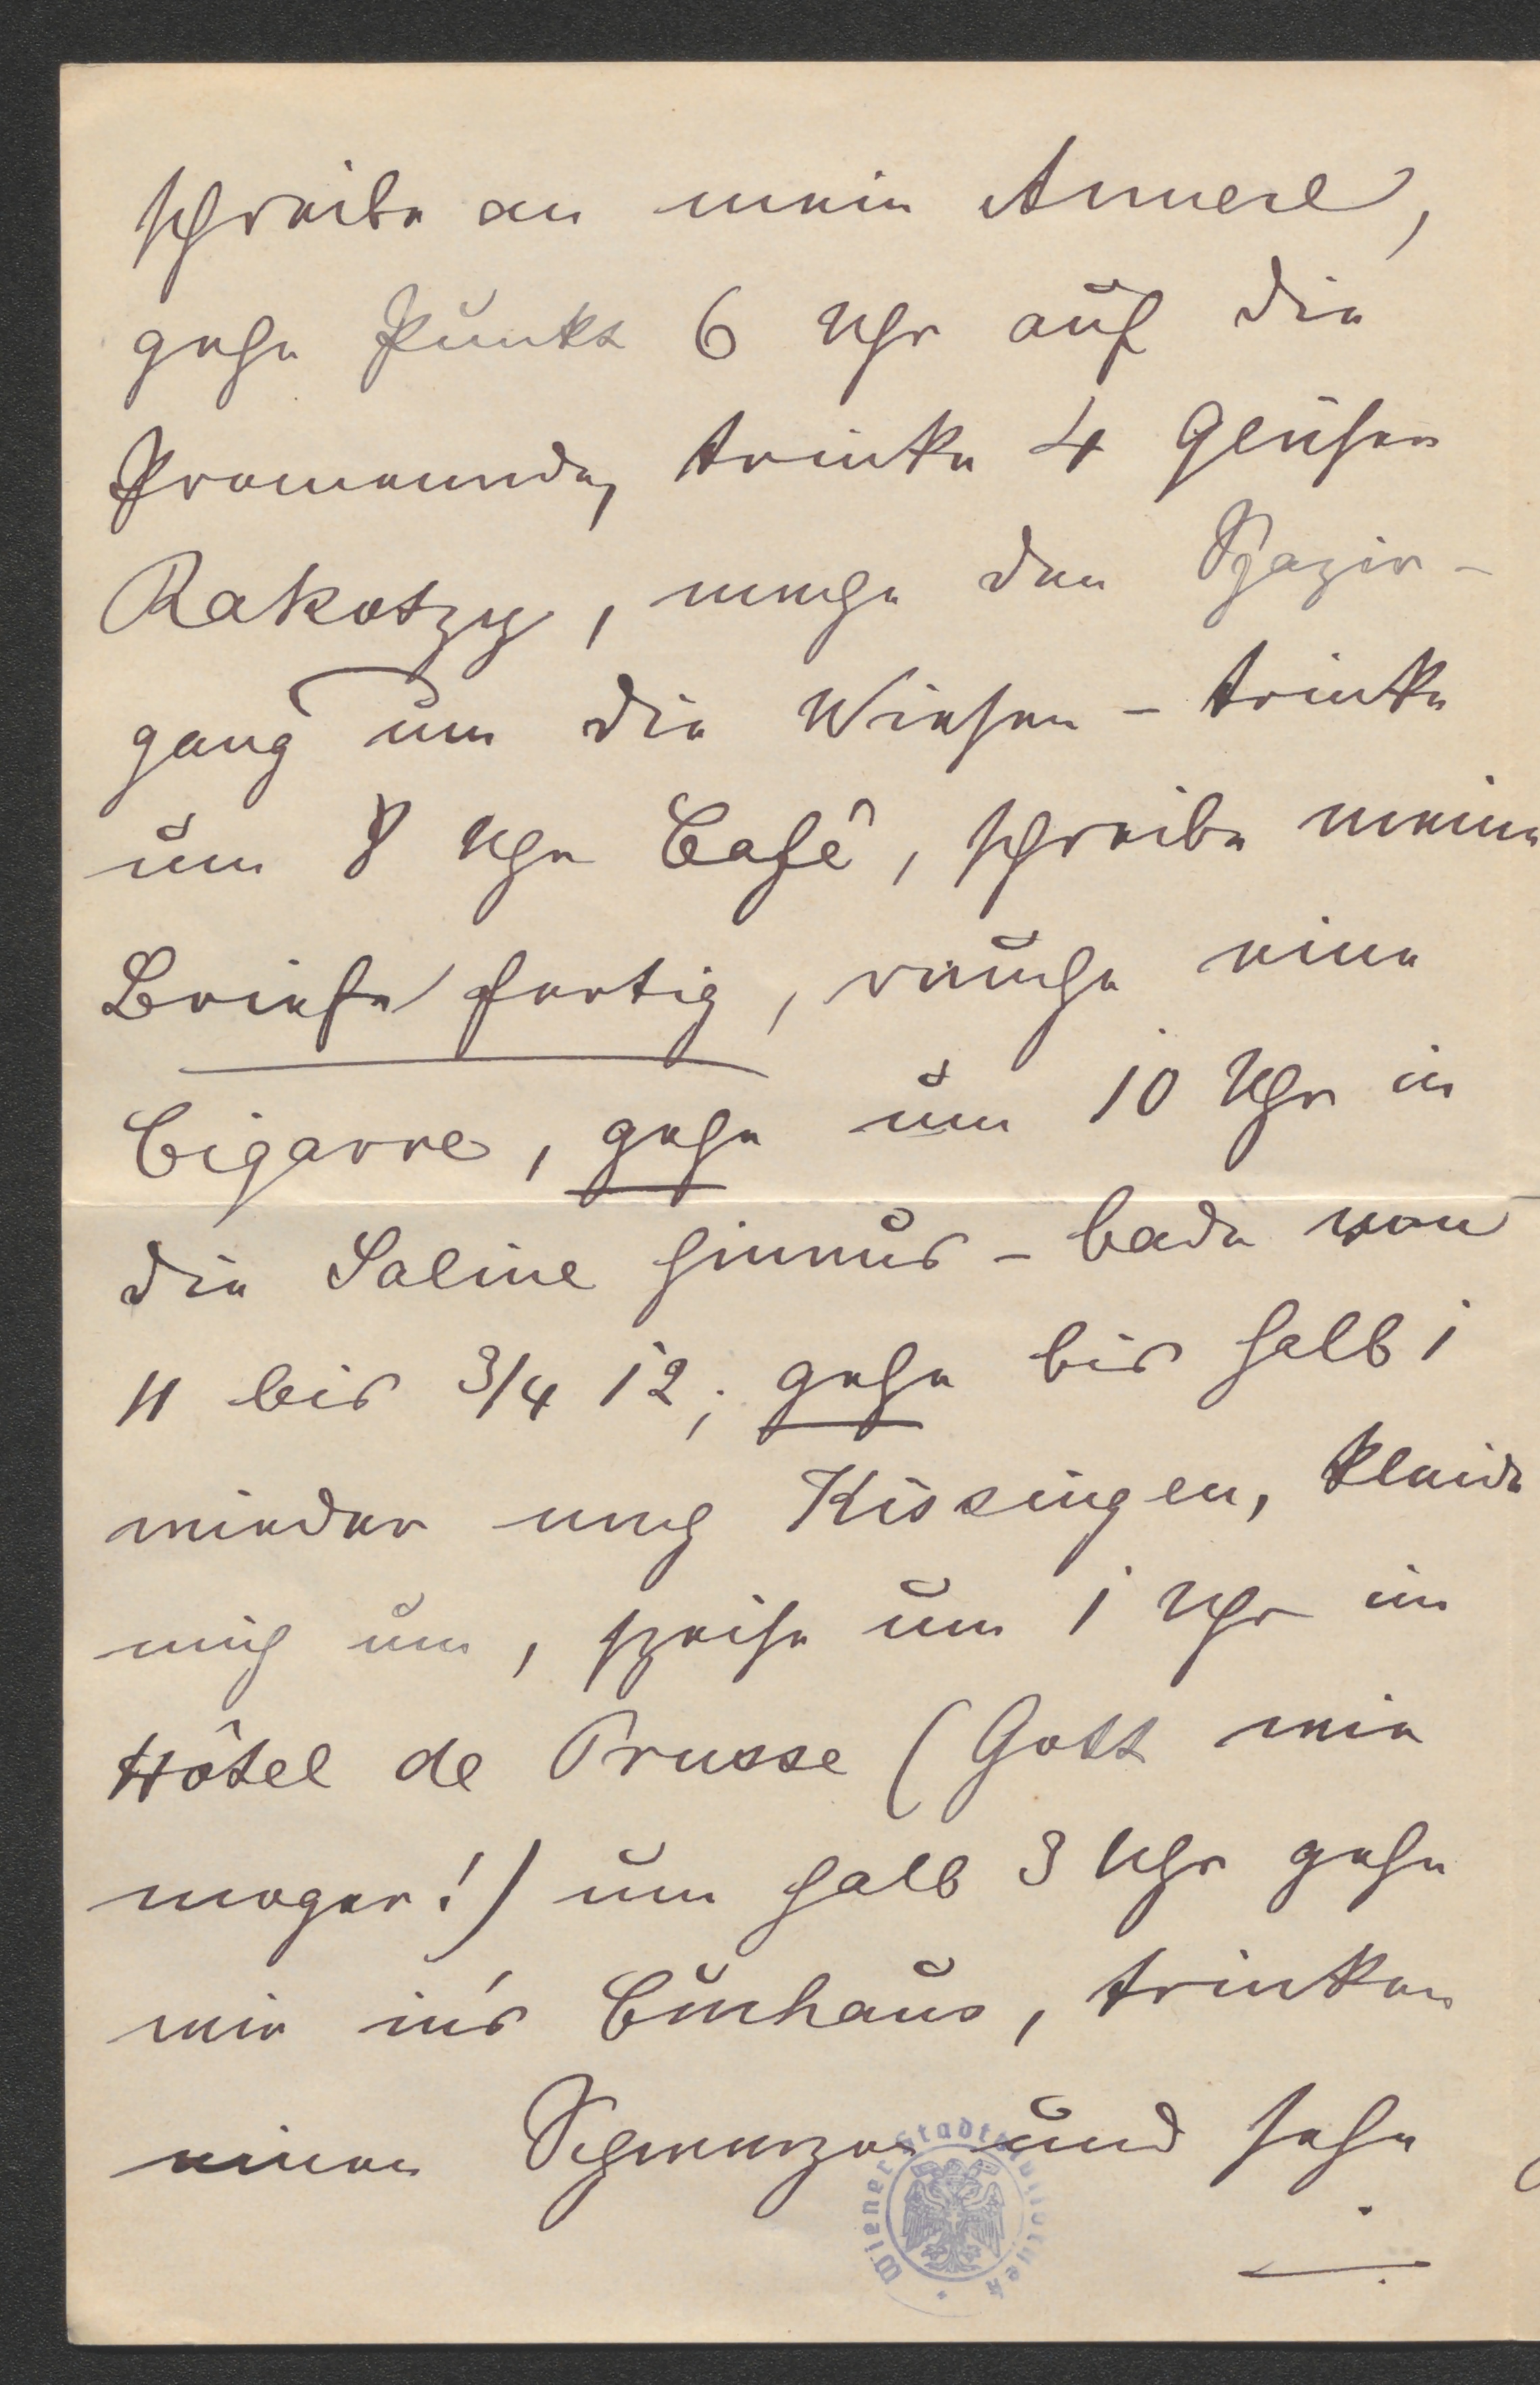 schreibe an mein Annerl,
gehe Punkt 6 Uhr auf die
Promenade, trinke 4 Gläser
Rakotzy, mache den Spazir-
gang um die Wiesen - trinke
um 8 Uhr Café, schreibe meine
Briefe fertig, rauche eine
Cigarre, gehe um 10 Uhr in
die Saline hinaus - bade von
11 bis 3/4 12; gehe bis halb 1
wieder nach Kissingen, kleide
mich um, speise um 1 Uhr im
Hôtel de Prusse (Gott wie
mager!) um halb 3 Uhr gehn
wir in's Curhaus, trinken
einen Schwarzen und sehn
Wiener Stadtbibliothek